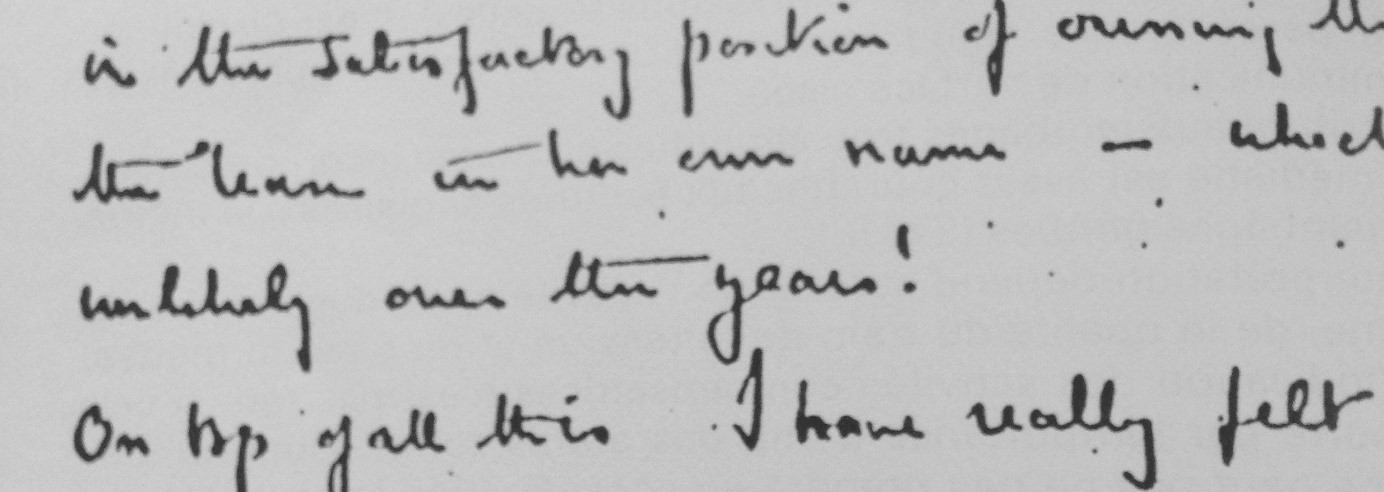 in the satisfactory position of owning
the lease in her own name –
unlikely over the years!
On top of all this I have really felt